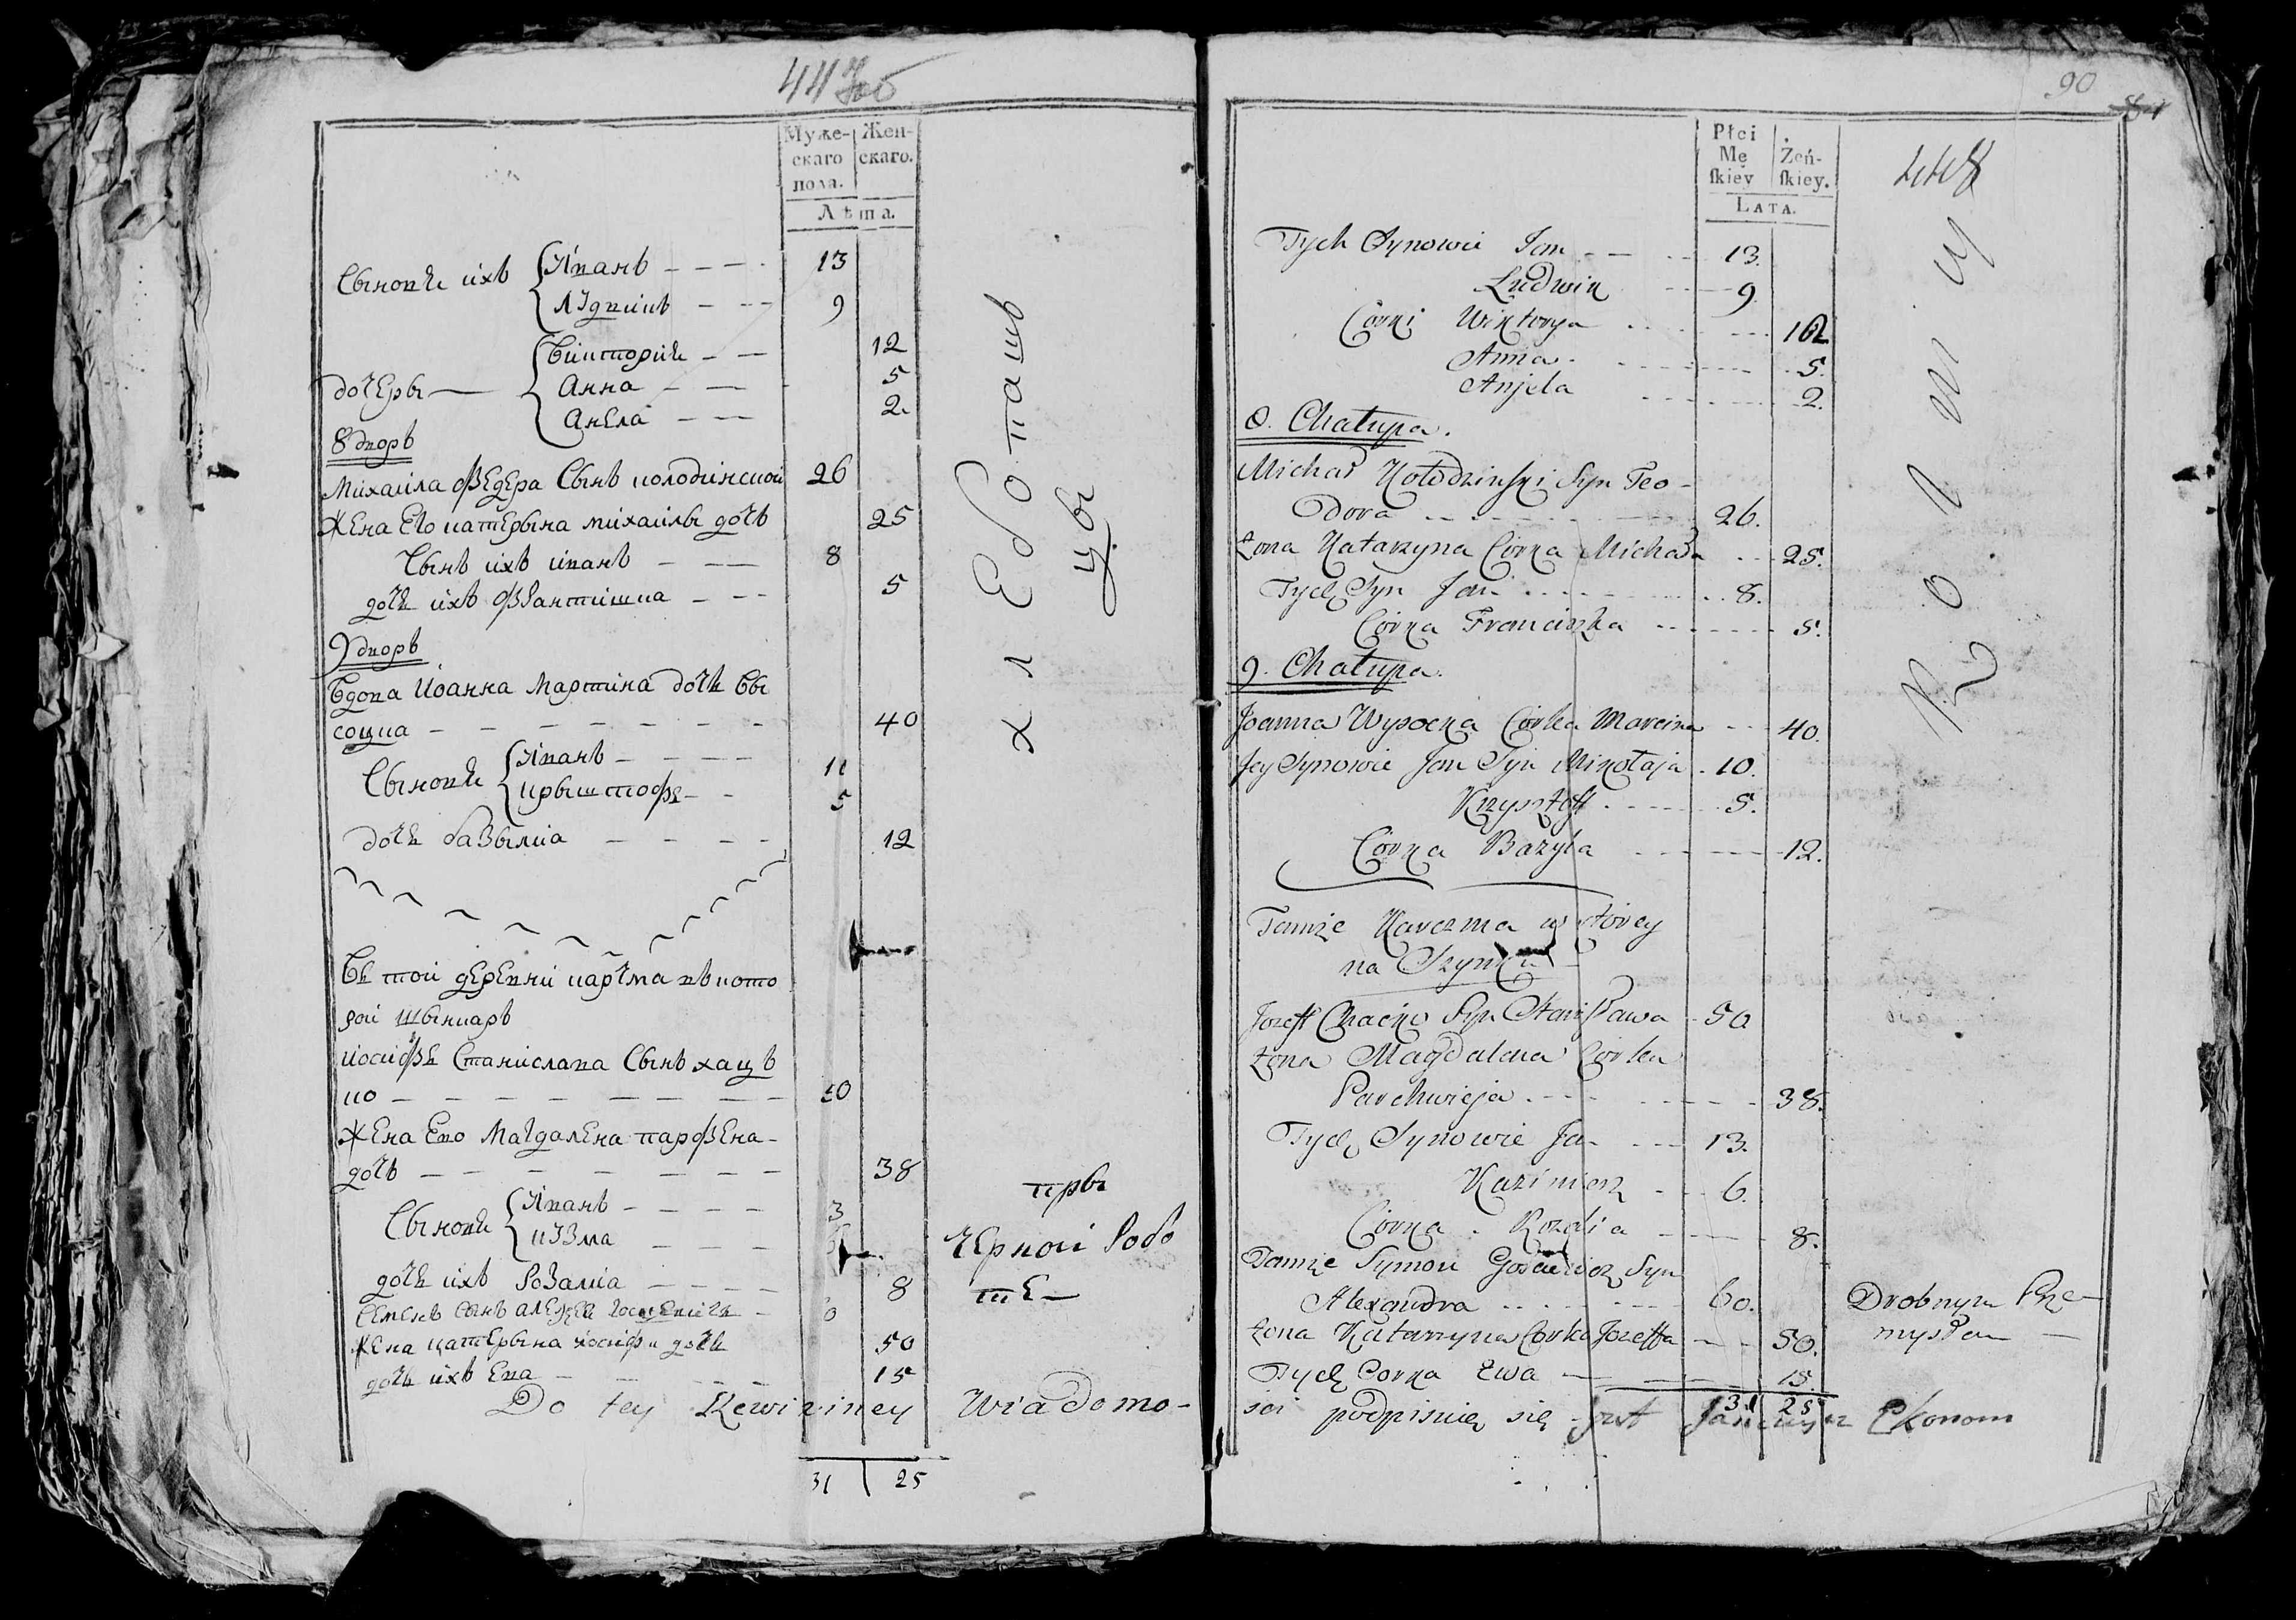 447об
Муже-
скаго
пола.
Жен-
скаго.
Лѣта.
Сыновѣ ихъ Иванъ 13
Лудвикъ 9
дочеры Викторія 12
Анна 5
Анела 2
8 дворъ
Михайла Федера Сынъ колодзинской 26
Жена Его катерына михайлы дочь 25
Сынъ ихъ иванъ 8
дочь ихъ Францишка 5
9 дворъ
Вдова Иоанна Мартина дочь Вы
соцка 40
Сыновѣ Иванъ 11
крыштофъ 5
дочь базылка 12
Въ той деревни карчма въ кото
рой шынкаръ
иосифъ Станислава Сынъ хацъ
ко 50
Жена Его Магдалена парфена
дочь 38
Сыновѣ Иванъ
кузма
дочь ихъ розалія 8
Семенъ сынъ алексея
Жена катерына иосифа дочь 50
дочь ихъ Ева 15
хлебопаш
цы
пры
черной рабо
те
31 25
90
448
Płci
Mę
ſkiey
Żeń-
ſkiey.
LATA.
Tych Synowie Jan 13.
Ludwik 9.
Corki Wiktorya 12
Anna 5.
Anjela 2.
8. Chałupa.
Michał Kołodzinski Syn Teo-
dora 26.
Żona Katarzyna Corka Michała 25.
Tych Syn Jan 8.
Corka Franciszka 5.
9. Chałupa.
Joanna Wysocka Corka Marcina 40.
Jey Synowie Jan Syn Mikołaja 10.
Krzysztoff 5.
Corka Bazyla 12.
Tamże Karczma w ktorey
na Szynku
Jozeff Chacko Syn Stanisława 50
Żona Magdalena Corka
Parchwieja 38.
Tych Synowie Jan 13.
Kazimierz 6.
Corka Rozalia 8.
Tamże Symon Syn
Alexandra 60.
Żona Katarzyna Corka Jozeffa 50.
Tych Corka Ewa 15.
Rolnicy
Drobnym Prze-
mysłem
31 25
Do tey Rewiziney Wiadomo-
sci podpisuię się Ekonom